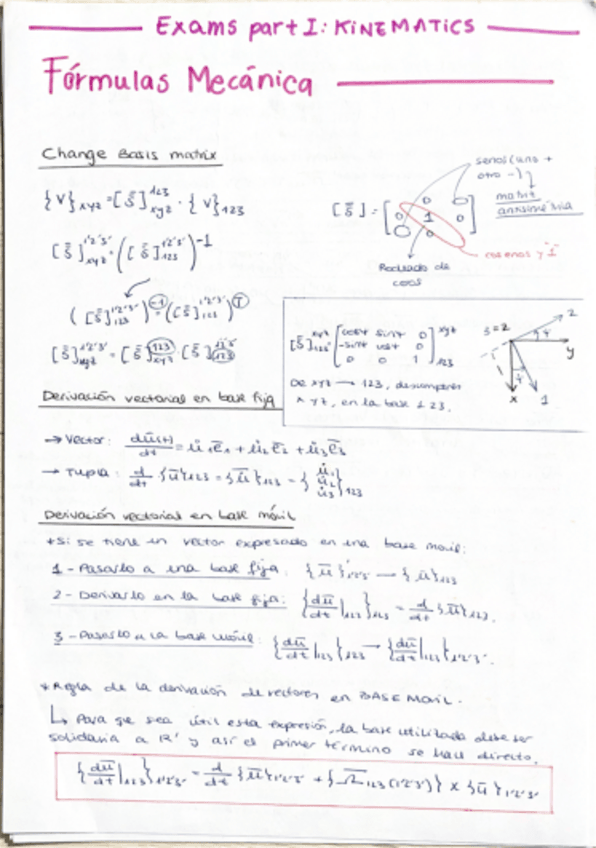 Exams part I: KINEMATICS
Fórmulas Mecánica
Change Basis matrix
{v}xyz = [S̄]¹²³xyz · {v}123
[S̄]¹'²'³'xyz = ([S̄]123)⁻¹
([S̄]¹'²'³'123)⁻¹ = ([S̄]¹'²'³'123)ᵀ
[S̄]¹'²'³'xyz = [S̄]¹²³xyz · [S̄]¹'²'³'123
senos (uno +
otro -)
matriz
antisimétrica
[S̄] =
0
0 1 0
0
cosenos y "1"
Rodeado de
ceros
3=z
2
y
x
1
De xyz → 123, descomponer
x y z, en la base 123.
Derivación vectorial en base fija
→ Vector: dū(t)/dt = u̇₁ē₁ + u̇₂ē₂ + u̇₃ē₃
→ Tupla: d/dt {ū}123 = {ū̇}123 = {u̇₁ u̇₂ u̇₃}123
Derivación vectorial en base móvil
* Si se tiene un vector expresado en una base movil:
1 - Pasarlo a una base fija: {ū}1'2'3' → {ū}123
2 - Derivarlo en la base fija: {dū/dt|123}123 = d/dt {ū}123.
3 - Pasarlo a la base móvil: {dū/dt|123}123 → {dū/dt|123}1'2'3'.
* Regla de la derivación de vectores en BASE MOVIL.
↳ Para que sea útil esta expresión, la base utilizada debe ser
solidaria a R' y así el primer término se hace directo.
{dū/dt|123}1'2'3' = d/dt {ū}1'2'3' + {Ω̄123(1'2'3')} x {ū}1'2'3'